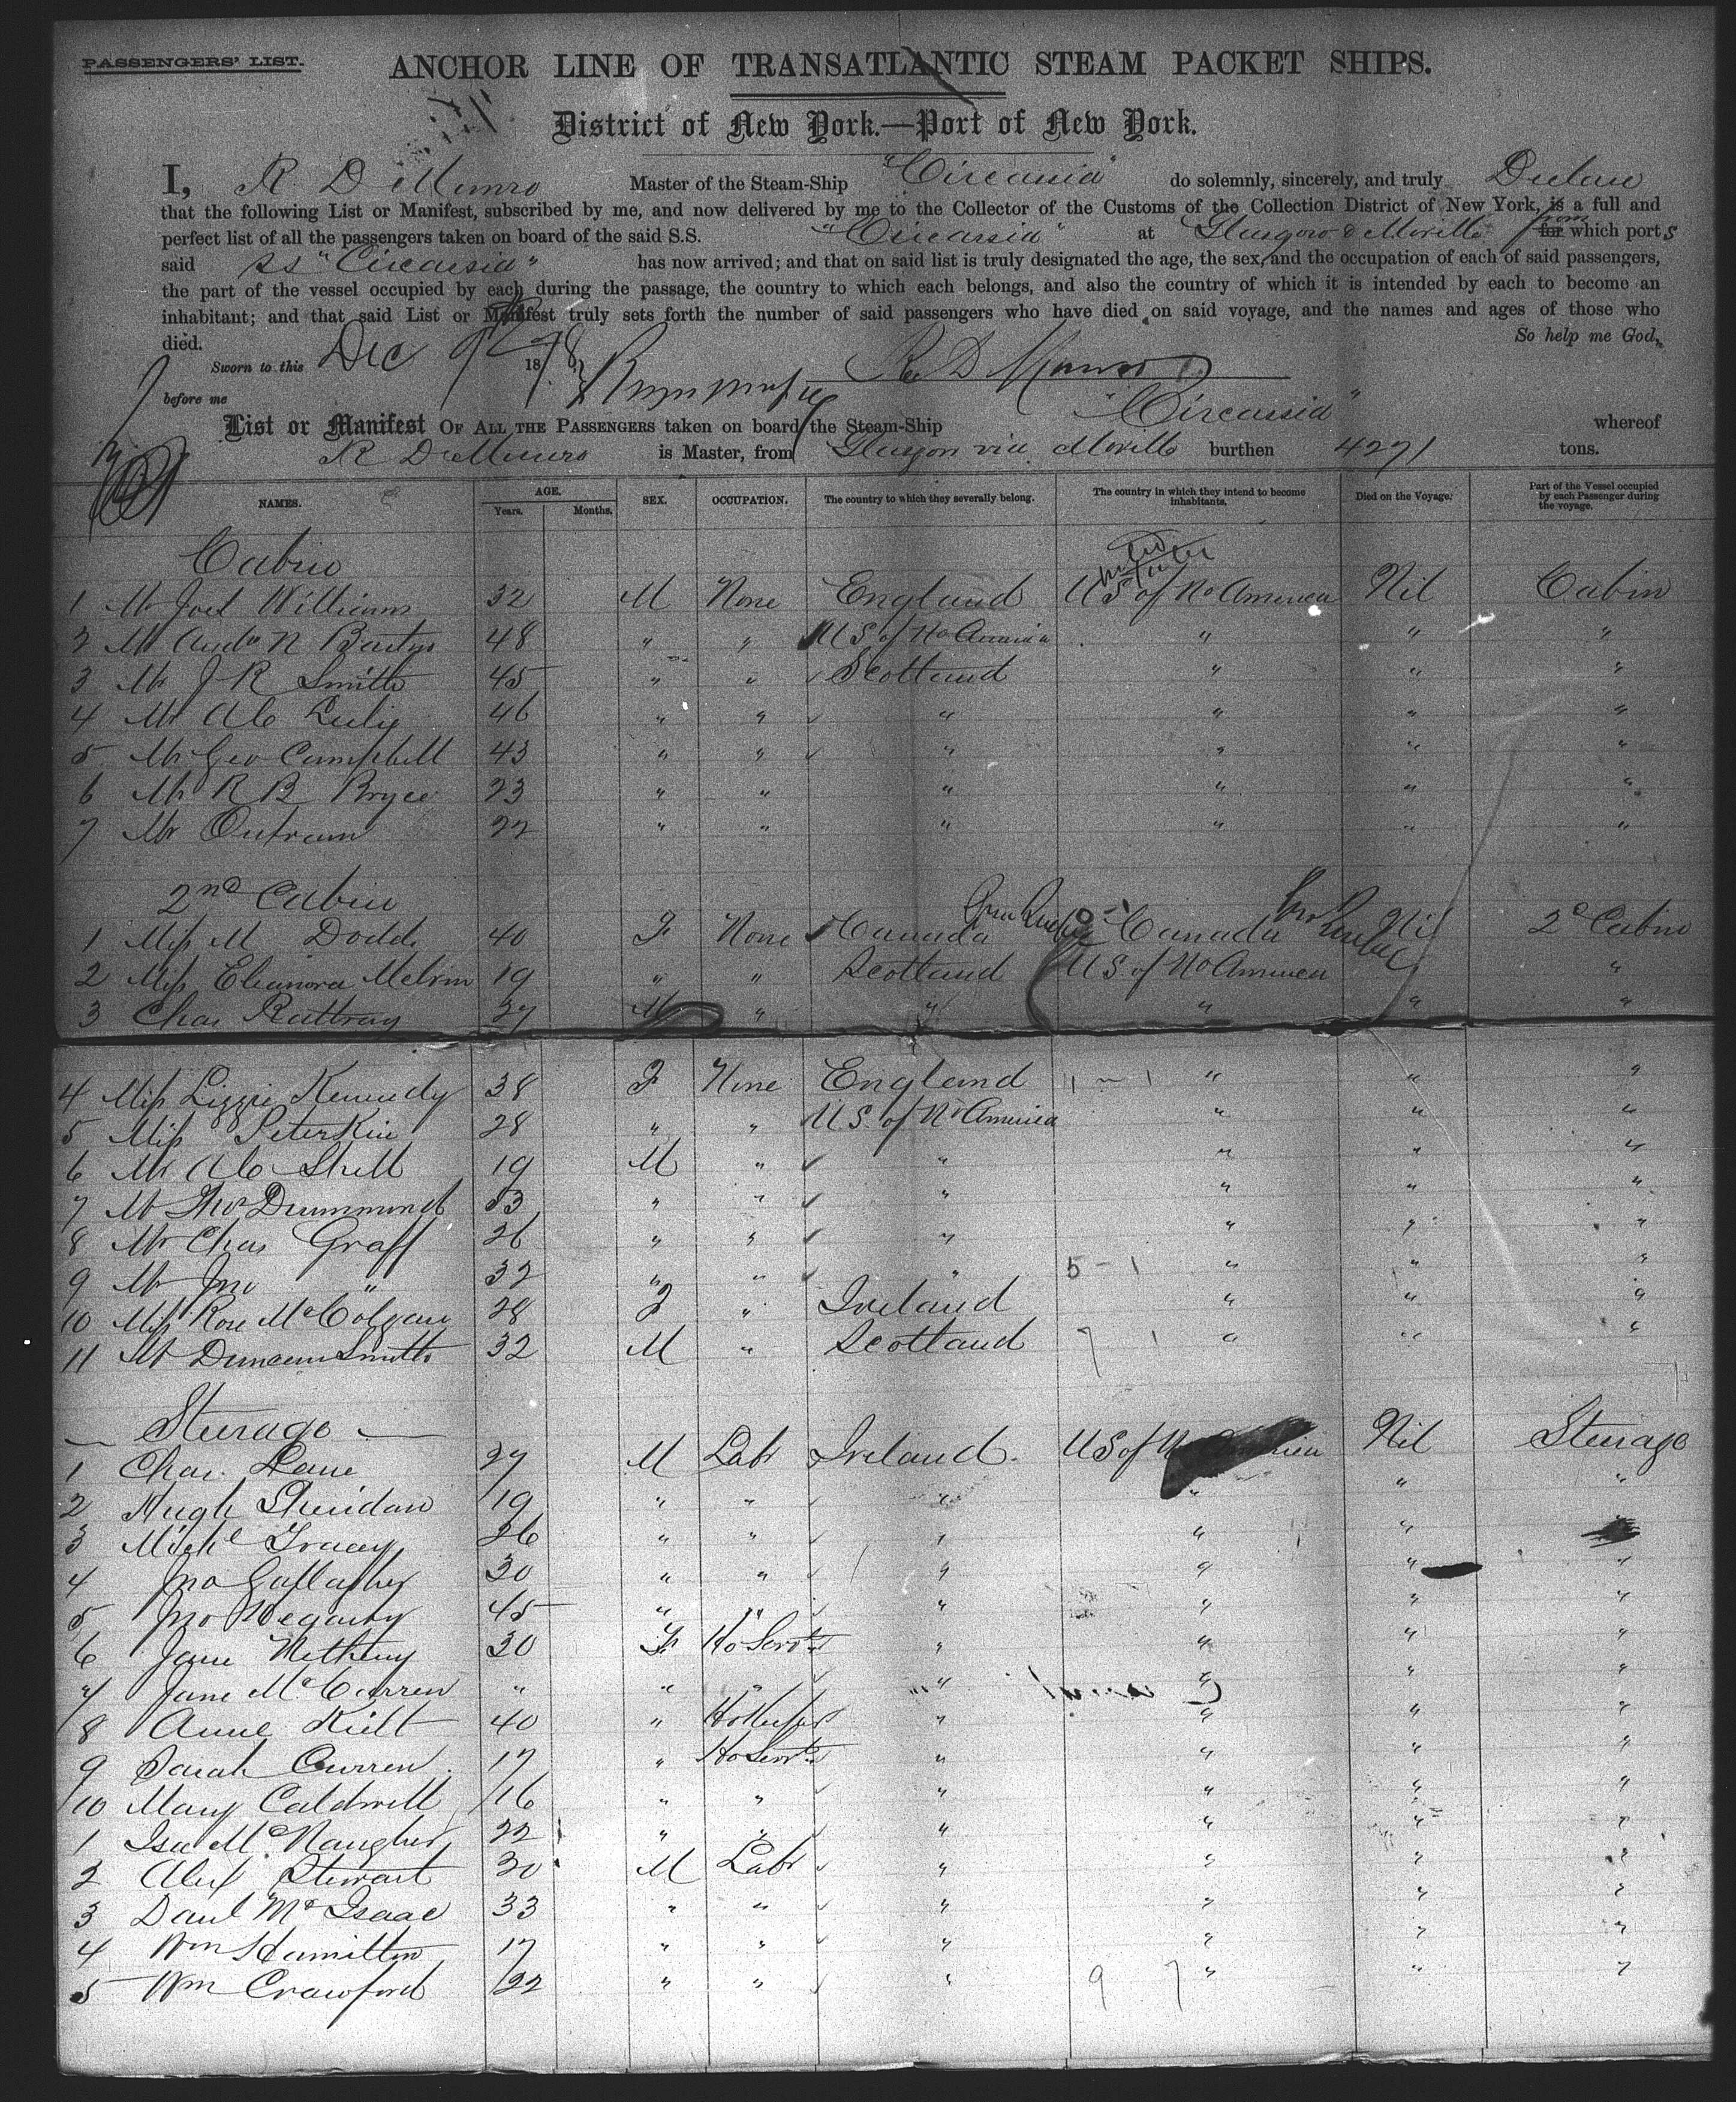 PASSENGERS' LIST.
ANCHOR LINE OF TRANSATLANTIC STEAM PACKET SHIPS.
District of New York.—Port of New York.
I, R D Munro Master of the Steam-Ship "Circassia" do solemnly, sincerely, and truly Declare
that the following List or Manifest, subscribed by me, and now delivered by me to the Collector of the Customs of the Collection District of New York, is a full and
perfect list of all the passengers taken on board of the said S.S. "Circassia" at Glasgow & Moville from for which ports
said SS "Circassia" has now arrived; and that on said list is truly designated the age, the sex, and the occupation of each of said passengers,
the part of the vessel occupied by each during the passage, the country to which each belongs, and also the country of which it is intended by each to become an
inhabitant; and that said List or Manifest truly sets forth the number of said passengers who have died on said voyage, and the names and ages of those who
died. So help me God,
Sworn to this Dec 9 1878 R D Munro
before me
List or Manifest OF ALL THE PASSENGERS taken on board the Steam-Ship "Circassia" whereof
R D Munro is Master, from Glasgow via Moville burthen 4271 tons.
NAMES. AGE. Years. Months. SEX. OCCUPATION. The country to which they severally belong. The country in which they intend to become inhabitants. Died on the Voyage. Part of the Vessel occupied by each Passenger during the voyage.
Cabin
1 Mr Joel Williams 32 M None England U S of No America Nil Cabin
2 Mr Andw N 48 " " U S of No America " " "
3 Mr J R Smith 45 " " Scotland " " "
4 Mr Alc 46 " " " " " "
5 Mr Geo Campbell 43 " " " " " "
6 Mr R B Bryce 23 " " " " " "
7 Mr Outram 22 " " " " " "
2nd Cabin
1 Miss M Dodds 40 F None Canada Canada Nil 2d Cabin
2 Miss Eleanora Melvin 19 " " Scotland U S of No America "
3 Chas Rattray 37 M " " " " "
4 Miss Lizzie Kennedy 38 F None England " " "
5 Miss Peterkin 28 " " U.S. of No America " " "
6 Mr Alc 19 M " " " " "
7 Mr Thos Drummond 53 " " " " " "
8 Mr Chas Graff 26 " " " " " "
9 Mr Jno " 32 " " " 5 - 1 " " "
10 Miss Rose McColgan 28 F " Ireland " " "
11 Mr Duncan Smith 32 M " Scotland 7 1 " " "
Steerage
1 Chas. Lane 27 M Labr Ireland. U S of No America Nil Steerage
2 Hugh Sheridan 19 " " " " " "
3 Michl Tracey 26 " " " " "
4 Jno Gallagher 30 " " " " " "
5 Jno Hegarty 45 " " " " " "
6 Jane 30 F Ho Servts " " " "
7 Jane McCurren " " " " " " "
8 Anne 40 " HoKeeper " " " "
9 Sarah Curren 17 " Ho Servts " " " "
10 Mary Caldwell 16 " " " " " "
1 Isa McNaugher 22 " " " " " "
2 Alex Stewart 30 M Labr " " " "
3 Danl McIsaac 33 " " " " " "
4 Wm Hamilton 17 " " " " " "
5 Wm Crawford 22 " " " 9 7 " " "